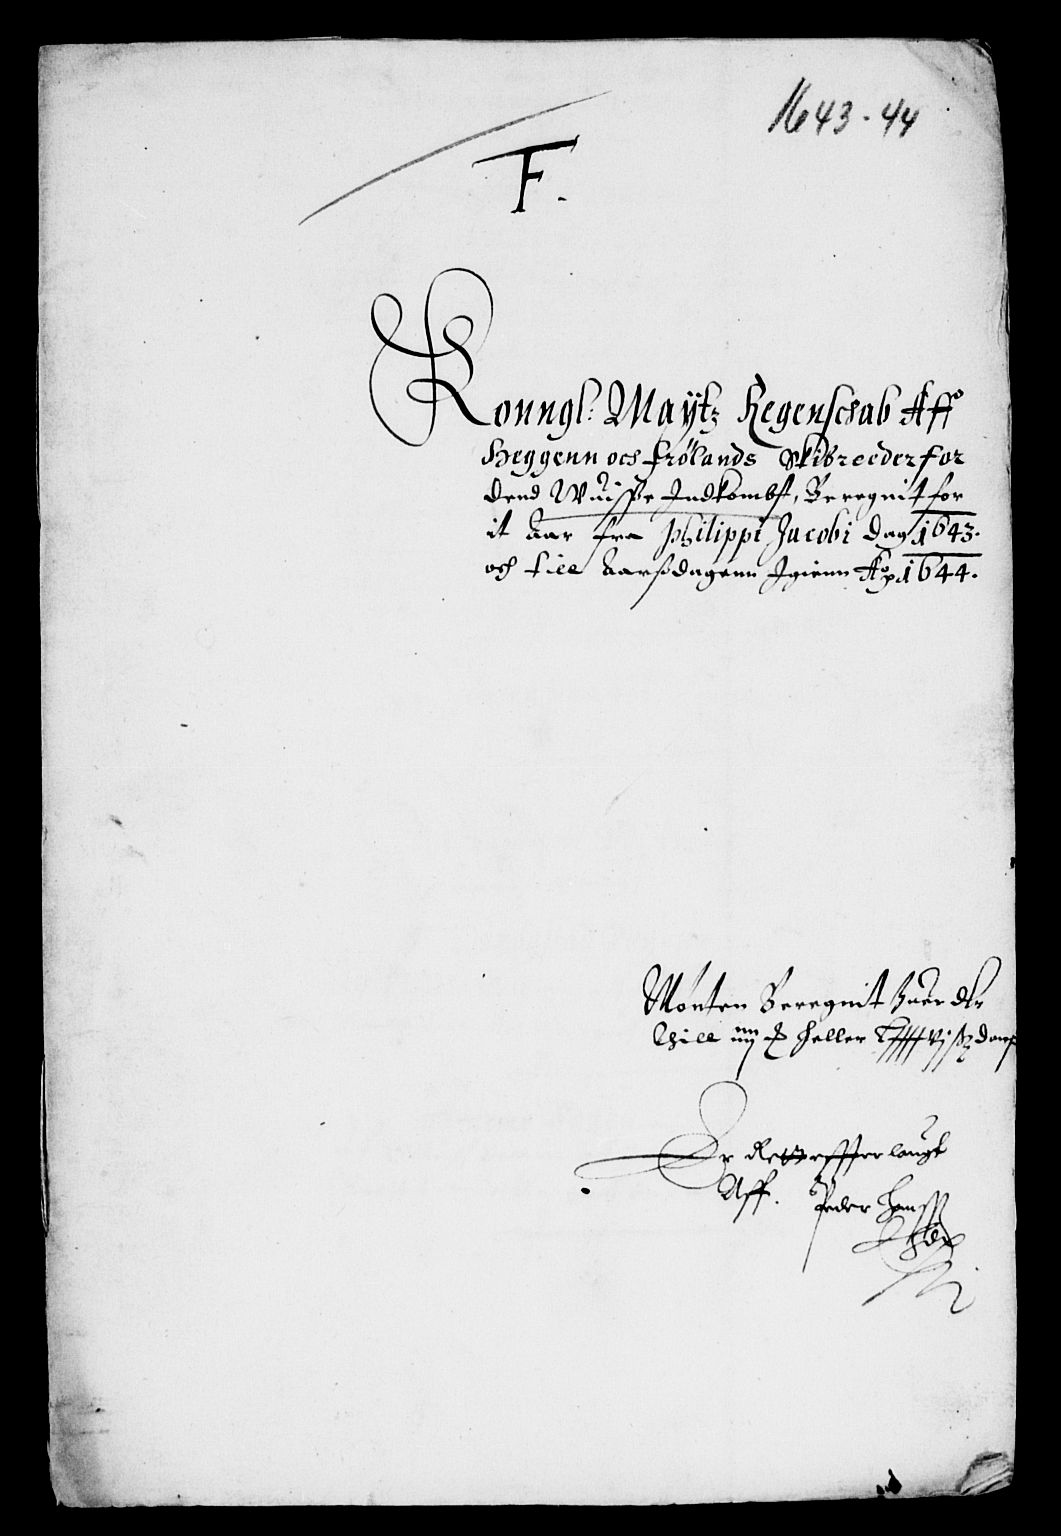 1643-44
F.
Konngl: Maÿtz Regenschab Aff
Heggenn och Frølands Skibreeder for
dend Wuisse Indkombst, Beregnit for
it Aar fra Philippi Jacobi dag 1643.
och till Aarsdagenn Igienn Ao 1644.
Mønten Beregnit huer dlr
Thill iiij heller
Er Rettefferlaugt
Aff. Peder Hanss